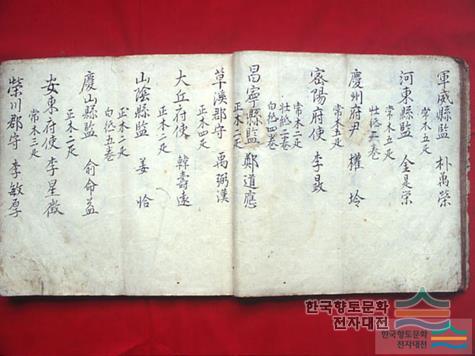 軍威縣監 朴萬榮
常木五疋
河東縣監 全是棠
常木五疋
壯紙二卷
慶州府尹 權坽
常木五疋
密陽府使 李晸
常木三疋
壯紙二卷
昌寧縣監 鄭道應
白紙四卷
正木二疋
草溪郡守 禹弼漢
正木四疋
大丘府使 韓壽遠
正木三疋
山陰縣監 姜恰
正木二疋
白紙五卷
慶山縣監 俞命益
正木二疋
安東府使 李星徵
常木三疋
榮川郡守 李敏厚
한국향토문화
전자대전
한국향토문화
전자대전